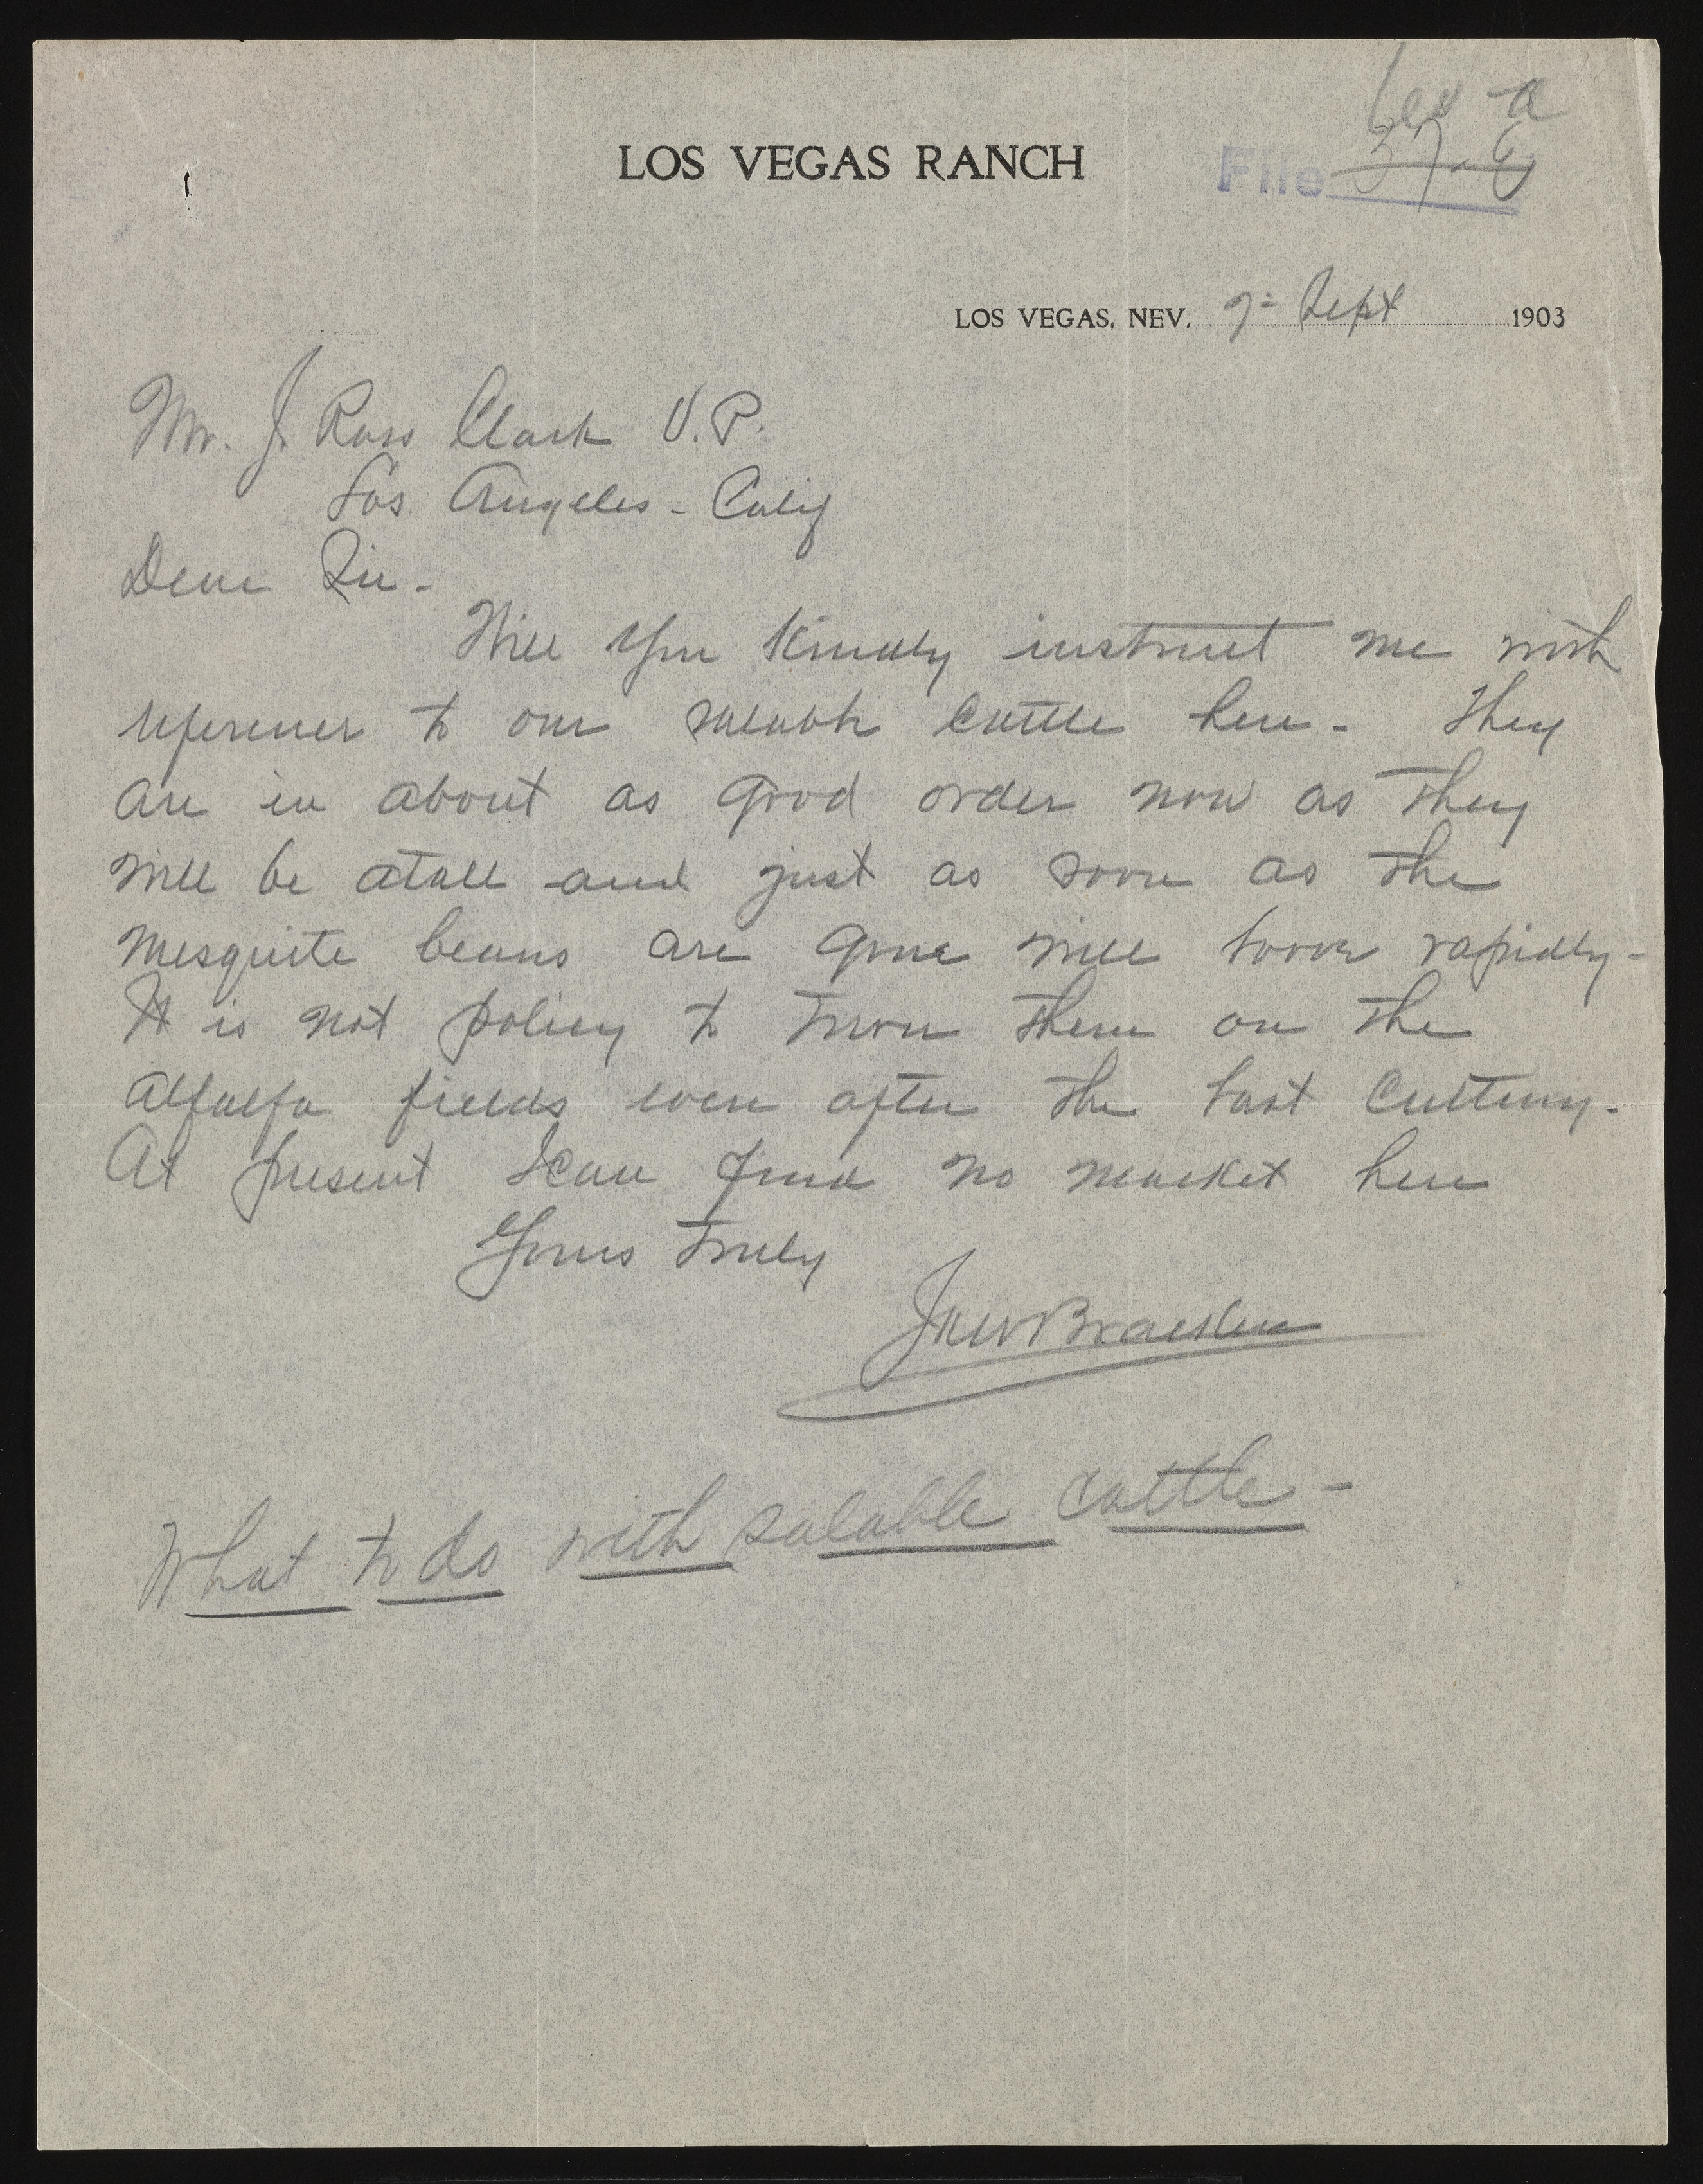 LOS VEGAS RANCH
File 37-6
LOS VEGAS, NEV. 9= Sept 1903
Mr. J. Ross Clark V.P.
Los Angeles - Calif
Dear Sir -
Will you Kindly instruct me with
reference to our salable cattle here - They
are in about as good order now as they
will be atall and just as soon as the
mesquite beans are gone will loose rapidly -
It is not policy to turn them on the
alfalfa fields even after the last cutting -
At present I can find no market here
Yours Truly
What to do with salable cattle -